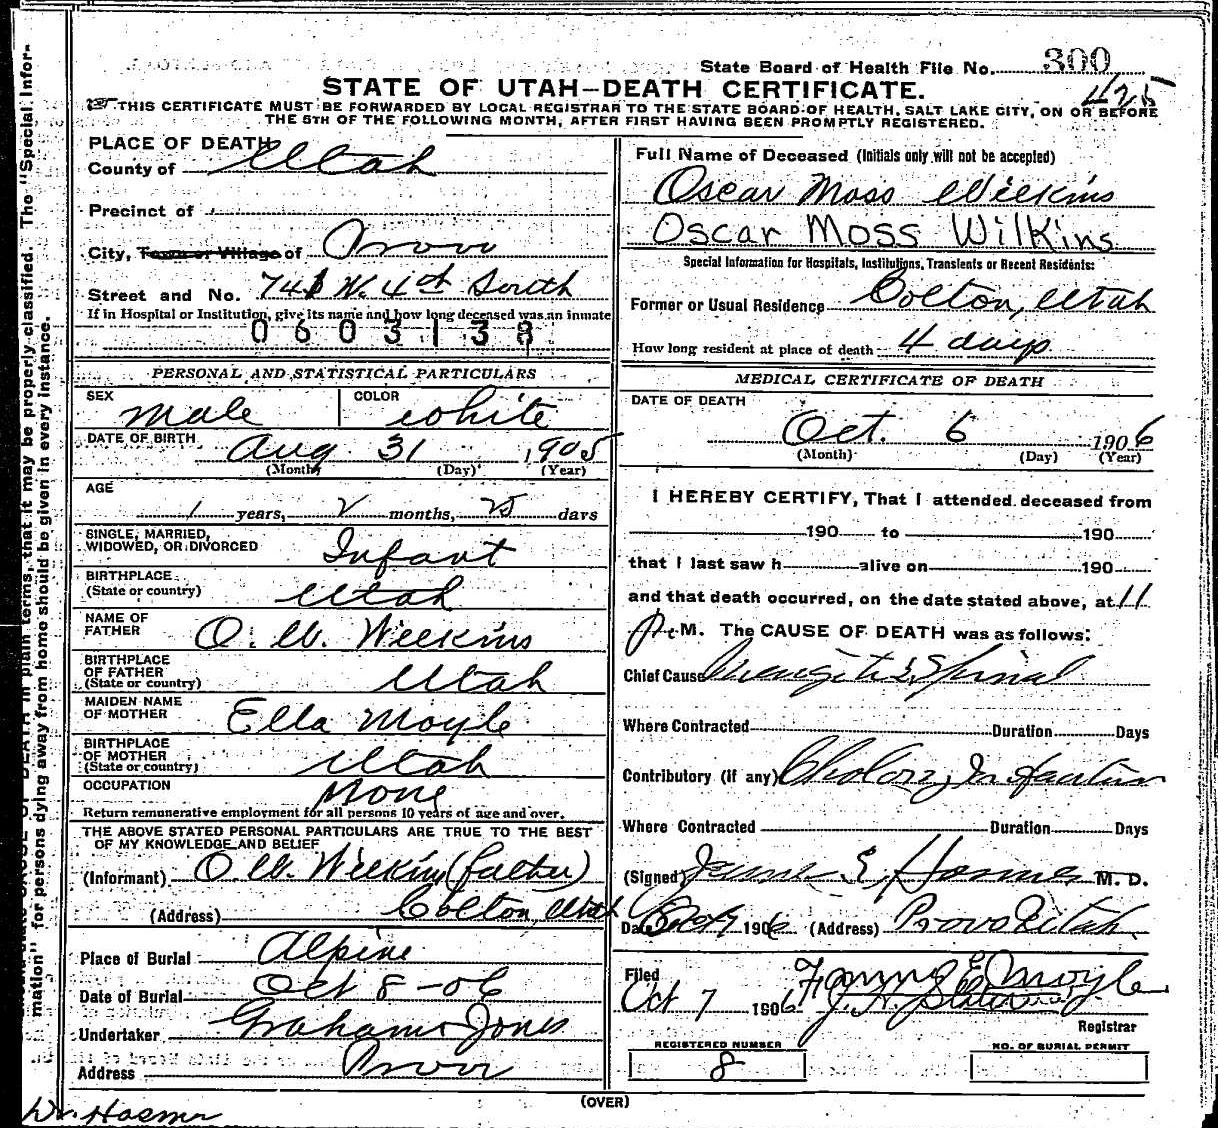 State Board of Health File No. 300
425
STATE OF UTAH—DEATH CERTIFICATE.
THIS CERTIFICATE MUST BE FORWARDED BY LOCAL REGISTRAR TO THE STATE BOARD OF HEALTH, SALT LAKE CITY, ON OR BEFORE
THE 5TH OF THE FOLLOWING MONTH, AFTER FIRST HAVING BEEN PROMPTLY REGISTERED.
PLACE OF DEATH
County of Utah
Precinct of
City, Town or Village of Provo
Street and No. 741 W. 4th South
If in Hospital or Institution, give its name and how long deceased was an inmate
0603138
PERSONAL AND STATISTICAL PARTICULARS
SEX male COLOR white
DATE OF BIRTH Aug 31 1905
(Month) (Day) (Year)
AGE
1 years, 2 months, 25 days
SINGLE, MARRIED,
WIDOWED, OR DIVORCED Infant
BIRTHPLACE
(State or country) Utah
NAME OF
FATHER O. W. Wilkins
BIRTHPLACE
OF FATHER
(State or country) Utah
MAIDEN NAME
OF MOTHER Ella Moyle
BIRTHPLACE
OF MOTHER
(State or country) Utah
OCCUPATION None
Return remunerative employment for all persons 10 years of age and over.
THE ABOVE STATED PERSONAL PARTICULARS ARE TRUE TO THE BEST
OF MY KNOWLEDGE AND BELIEF
(Informant) O. W. Wilkins (father)
(Address) Colton, Utah
Place of Burial Alpine
Date of Burial Oct 8-06
Undertaker Graham & Jones
Address Provo
Full Name of Deceased (Initials only will not be accepted)
Oscar Moss Wilkins
Oscar Moss Wilkins
Special Information for Hospitals, Institutions, Transients or Recent Residents:
Former or Usual Residence Colton, Utah
How long resident at place of death 4 days
MEDICAL CERTIFICATE OF DEATH
DATE OF DEATH
Oct. 6 1906
(Month) (Day) (Year)
I HEREBY CERTIFY, That I attended deceased from
190 to 190
that I last saw h alive on 190
and that death occurred, on the date stated above, at 11
P. M. The CAUSE OF DEATH was as follows:
Chief Cause Meningitis Spinal
Where Contracted Duration Days
Contributory (if any) Cholera Infantum
Where Contracted Duration Days
(Signed) E. Hosmer M. D.
Date Oct 1906 (Address) Provo Utah
Filed Fanny E Moyle
Oct 7 1906 J. H.
Registrar
REGISTERED NUMBER
8
NO. OF BURIAL PERMIT
(OVER)
Dr. Hosmer
DEATH in plain terms, that it may be properly classified. The "Special Infor-
mation" for persons dying away from home should be given in every instance.